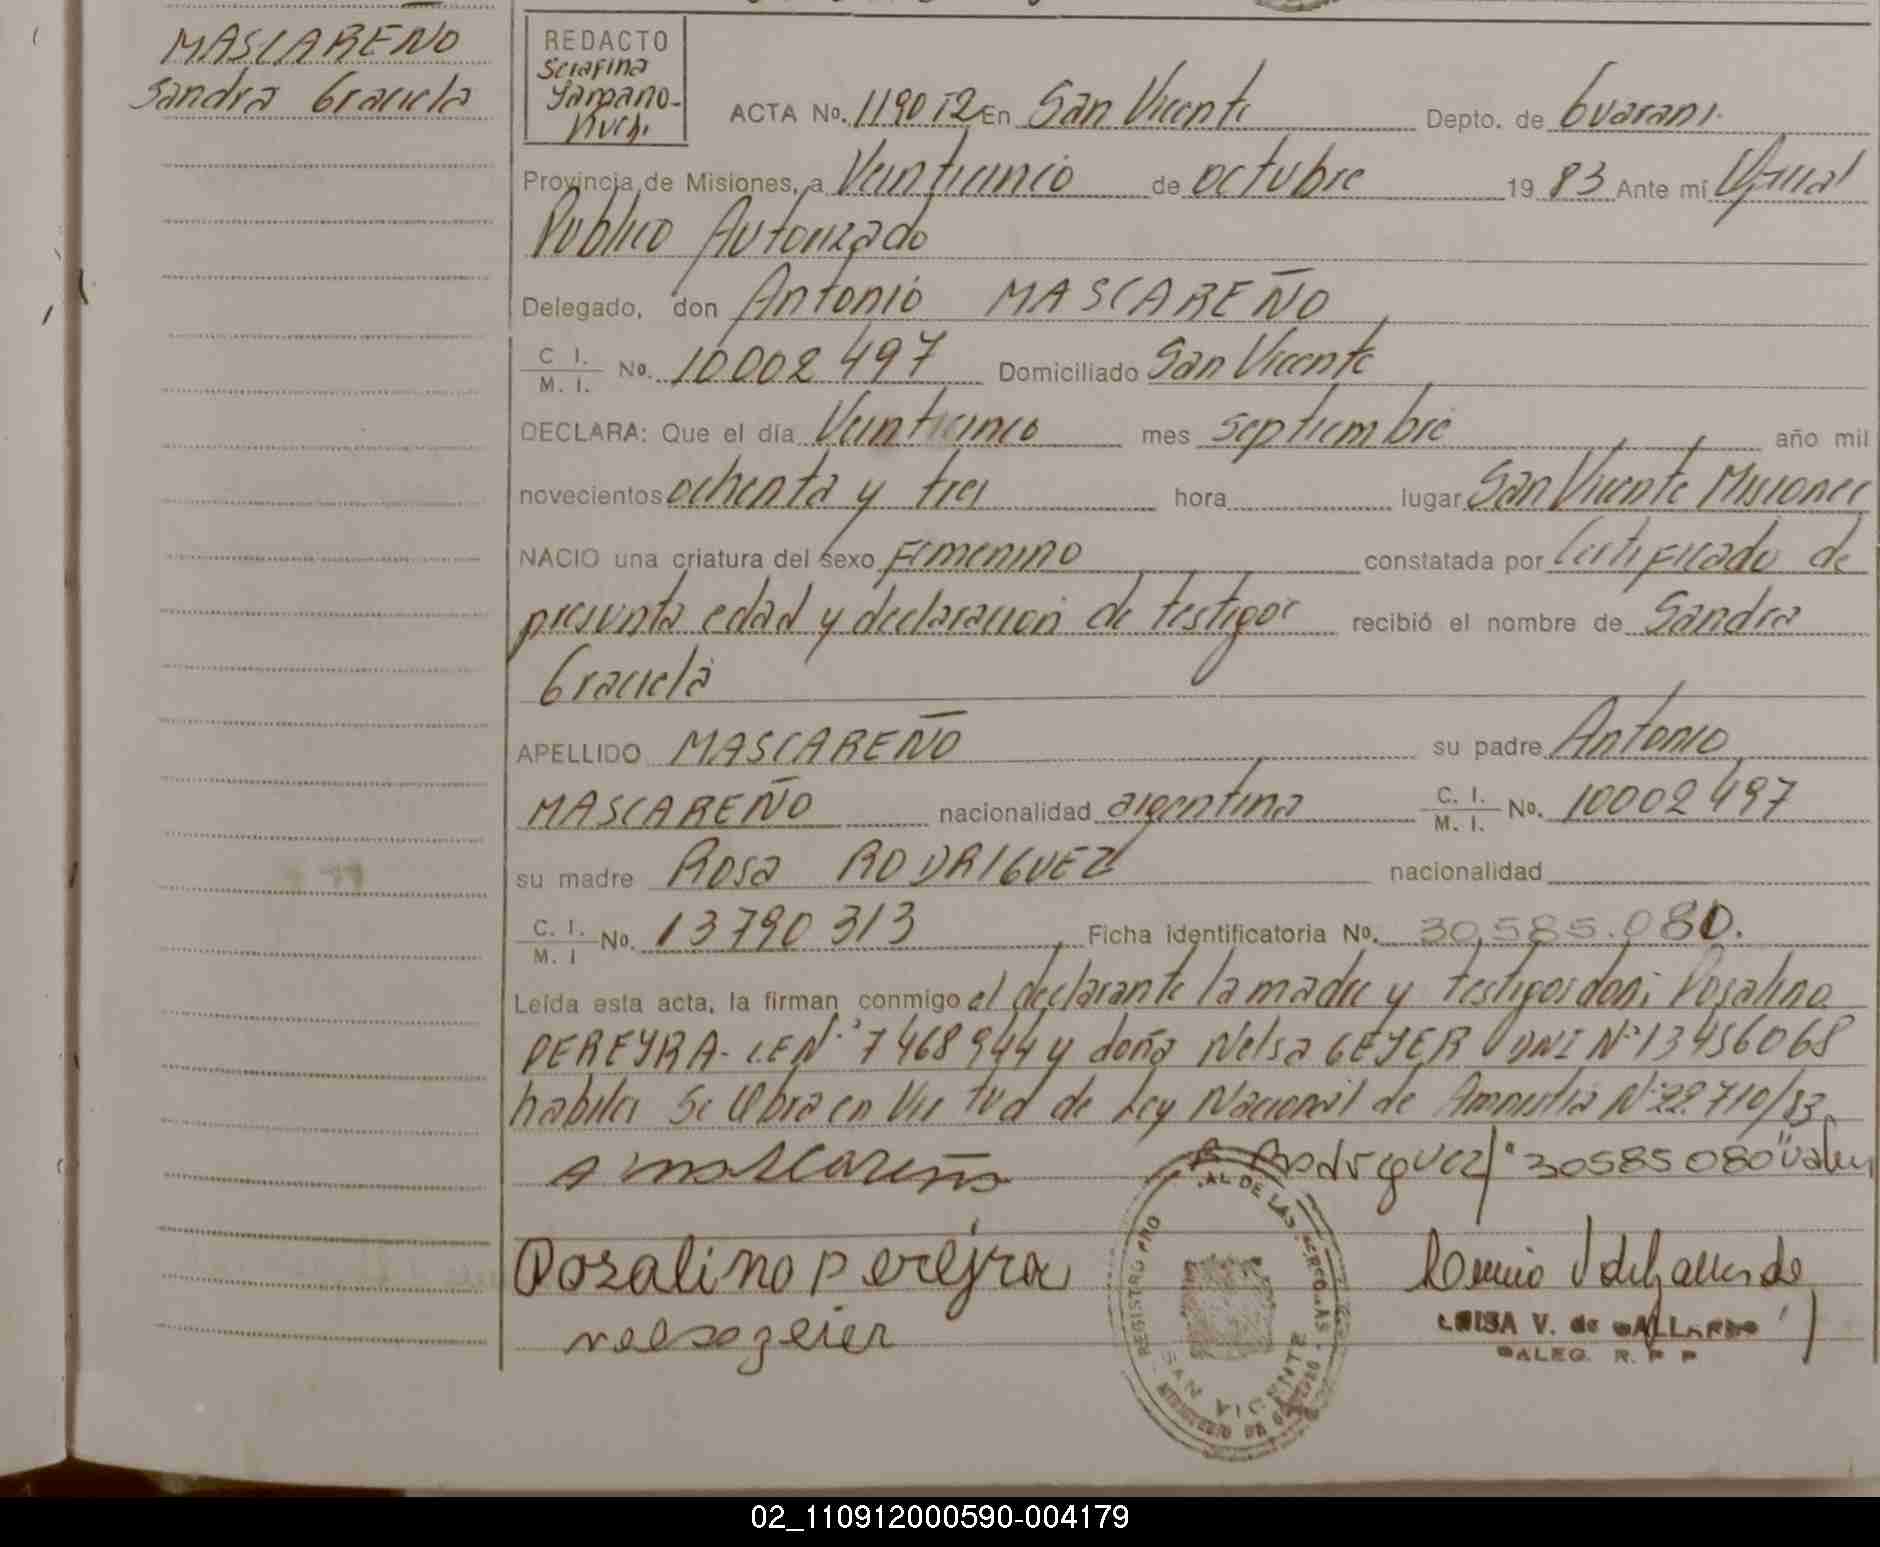 MASCAREÑO
Sandra Graciela
REDACTO
Serafina
ACTA No. 1190 T2 En San Vicente Depto. de Guarani.
Provincia de Misiones, a Veinticinco de octubre 19 83 Ante mí Oficial
Publico Autorizado
Delegado, don Antonio MASCAREÑO
C. I. M. I. No. 10002497 Domiciliado San Vicente
DECLARA: Que el día Veinticinco mes septiembre año mil
novecientos ochenta y tres hora lugar San Vicente Misiones
NACIO una criatura del sexo Femenino constatada por Certificado de
presunta edad y declaracion de testigos recibió el nombre de Sandra
Graciela
APELLIDO MASCAREÑO su padre Antonio
MASCAREÑO nacionalidad argentina C. I. M. I. No. 10002497
su madre Rosa RODRIGUEZ nacionalidad
C. I. M. I No. 13790313 Ficha identificatoria No. 30.585.080.
Leída esta acta, la firman conmigo el declarante la madre y testigos don: Rosalino
PEREYRA- L.E Nº 7468944 y doña Nelsa GEYER DNI Nº 13456068
habiles Se labra en Virtud de Ley Nacional de Amnistia Nº 22.710/83
A mascareño R Rodriguez/ "30585080" Vale
Rosalino pereyra
nelsa geier
LUISA V. de GALLARDO
DALEG. R. P P
REGISTRO PRO AL DE LAS PERSONAS
SAN VICENTE
MINISTERIO DE GOBIERNO
02_110912000590-004179